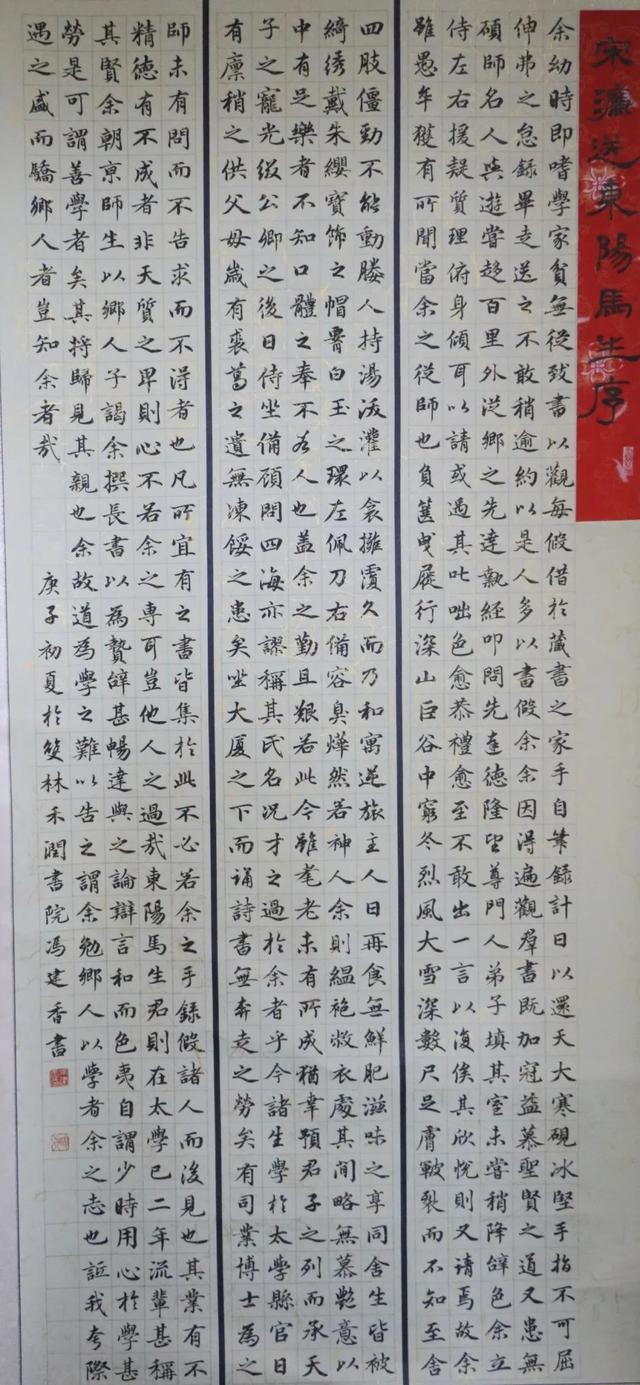 宋濂送東陽馬生序
余幼時即嗜學家貧無從致書以觀每假借於藏書之家手自筆錄計日以還天大寒硯冰堅手指不可屈
伸弗之怠錄畢走送之不敢稍逾約以是人多以書假余余因得遍觀羣書既加冠益慕聖賢之道又患無
碩師名人與遊嘗趨百里外從鄉之先達執經叩問先達德隆望尊門人弟子填其室未嘗稍降辭色余立
侍左右援疑質理俯身傾耳以請或遇其叱咄色愈恭禮愈至不敢出一言以復俟其欣悅則又请焉故余
雖愚卒獲有所聞當余之從師也負篋曳屣行深山巨谷中窮冬烈風大雪深數尺足膚皸裂而不知至舍
四肢僵勁不能動媵人持湯沃灌以衾擁覆久而乃和寓逆旅主人日再食無鮮肥滋味之享同舍生皆被
綺綉戴朱纓寶飾之帽腰白玉之環左佩刀右備容臭燁然若神人余則縕袍敝衣處其間略無慕艷意以
中有足樂者不知口體之奉不若人也盖余之勤且艱若此今雖耄老未有所成猶幸預君子之列而承天
子之寵光綴公卿之後日侍坐備顧問四海亦謬稱其氏名況才之過於余者乎今諸生學於太學縣官日
有廩稍之供父母歲有裘葛之遺無凍餒之患矣坐大廈之下而誦詩書無奔走之勞矣有司業博士為之
師未有問而不告求而不得者也凡所宜有之書皆集於此不必若余之手錄假諸人而後見也其業有不
精德有不成者非天質之卑則心不若余之專耳豈他人之過哉東陽馬生君則在太學已二年流輩甚稱
其賢余朝京師生以鄉人子謁余撰長書以為贄辭甚暢達與之論辯言和而色夷自謂少時用心於學甚
勞是可謂善學者矣其将歸見其親也余故道為學之難以告之謂余勉鄉人以學者余之志也詆我夸際
遇之盛而驕鄉人者豈知余者哉
庚子初夏於雙林禾潤書院馮建香書